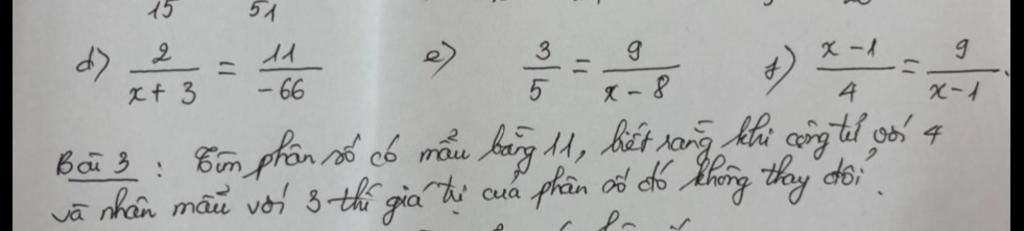 15 51
d) 2/(x+3) = 11/(-66) e) 3/5 = 9/(x-8) f) (x-1)/4 = 9/(x-1).
Bài 3 : Tìm phân số có mẫu bằng 11, biết rằng khi cộng tử với 4
và nhân mẫu với 3 thì giá trị của phân số đó không thay đổi.